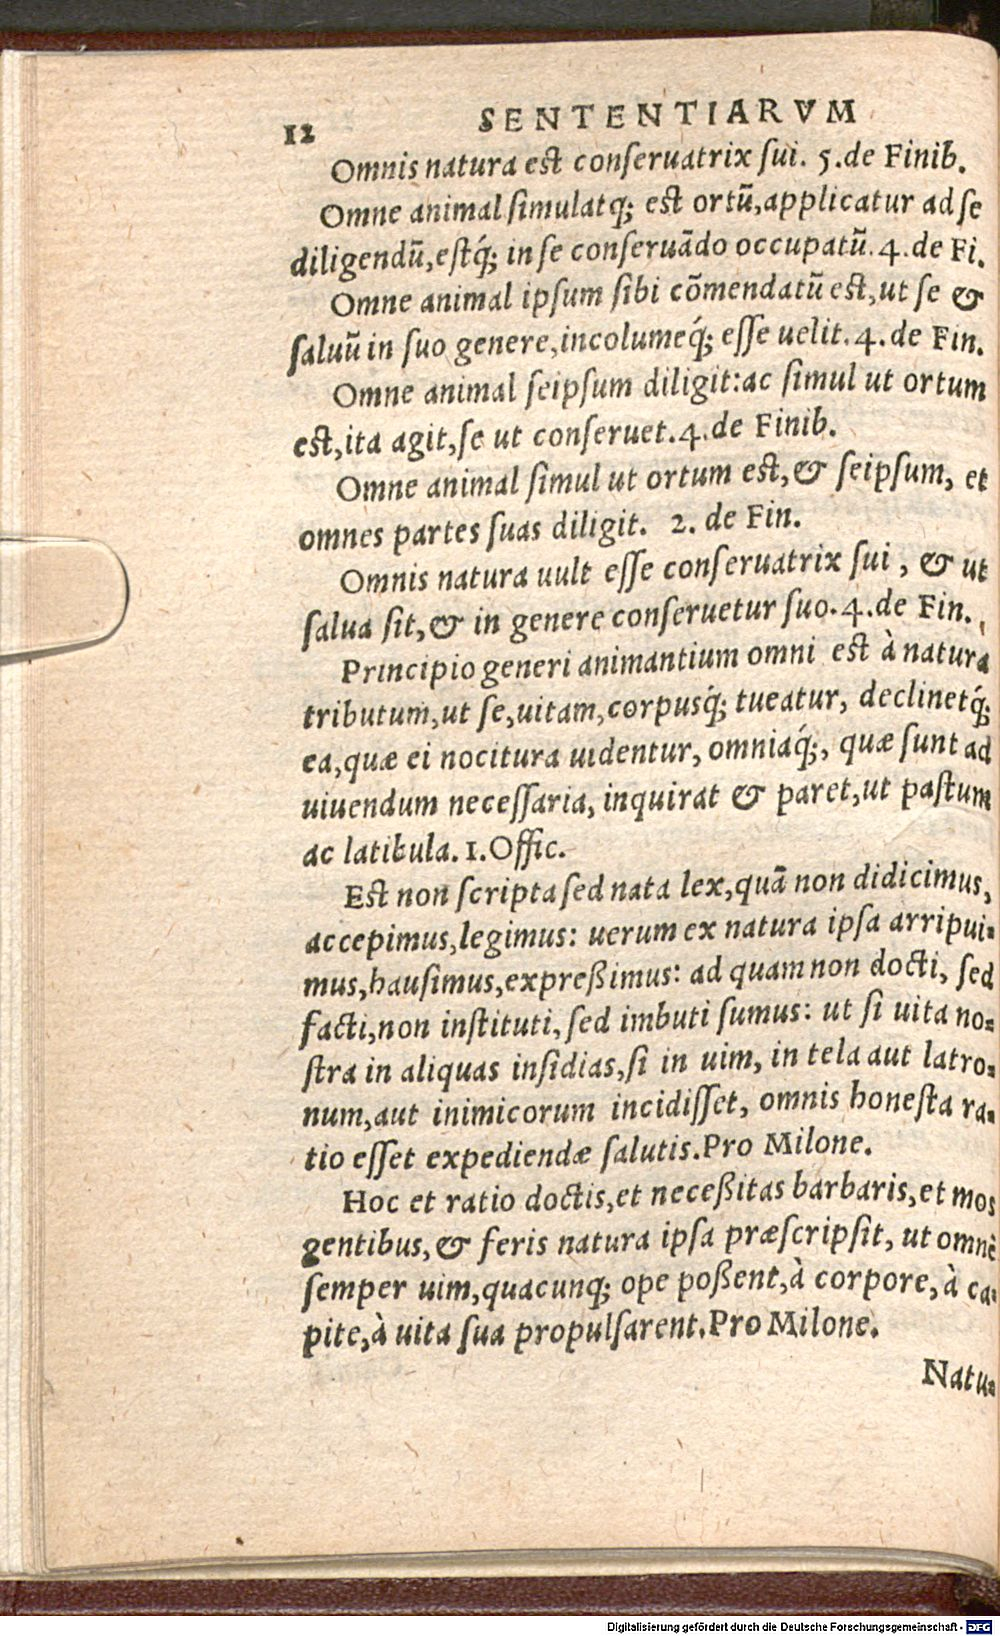 12 SENTENTIARVM
Omnis natura est conseruatrix sui. 5.de Finib.
Omne animal simulatq; est ortũ,applicatur ad se
diligendũ,estq́; in se conseruãdo occupatũ.4.de Fi.
Omne animal ipsum sibi cõmendatũ est,ut se &
saluũ in suo genere,incolumeq́; esse uelit.4.de Fin.
Omne animal seipsum diligit:ac simul ut ortum
est,ita agit,se ut conseruet.4.de Finib.
Omne animal simul ut ortum est,& seipsum, et
omnes partes suas diligit. 2. de Fin.
Omnis natura uult esse conseruatrix sui, & ut
salua sit,& in genere conseruetur suo.4.de Fin.
Principio generi animantium omni est à natura
tributum,ut se,uitam,corpusq́; tueatur, declinetq́;
ea,quæ ei nocitura uidentur, omniaq́;, quæ sunt ad
uiuendum necessaria, inquirat & paret,ut pastum
ac latibula.1.Offic.
Est non scripta sed nata lex,quã non didicimus,
accepimus,legimus: uerum ex natura ipsa arripui-
mus,hausimus,expreßimus: ad quam non docti, sed
facti,non instituti,sed imbuti sumus: ut si uita no-
stra in aliquas insidias,si in uim, in tela aut latro-
num,aut inimicorum incidisset, omnis honesta ra-
tio esset expediendæ salutis.Pro Milone.
Hoc et ratio doctis,et neceßitas barbaris,et mos
gentibus,& feris natura ipsa præscripsit, ut omnẽ
semper uim,quacunq; ope poßent,à corpore,à ca-
pite,à uita sua propulsarent.Pro Milone.
Natu-
Digitalisierung gefördert durch die Deutsche Forschungsgemeinschaft - DFG